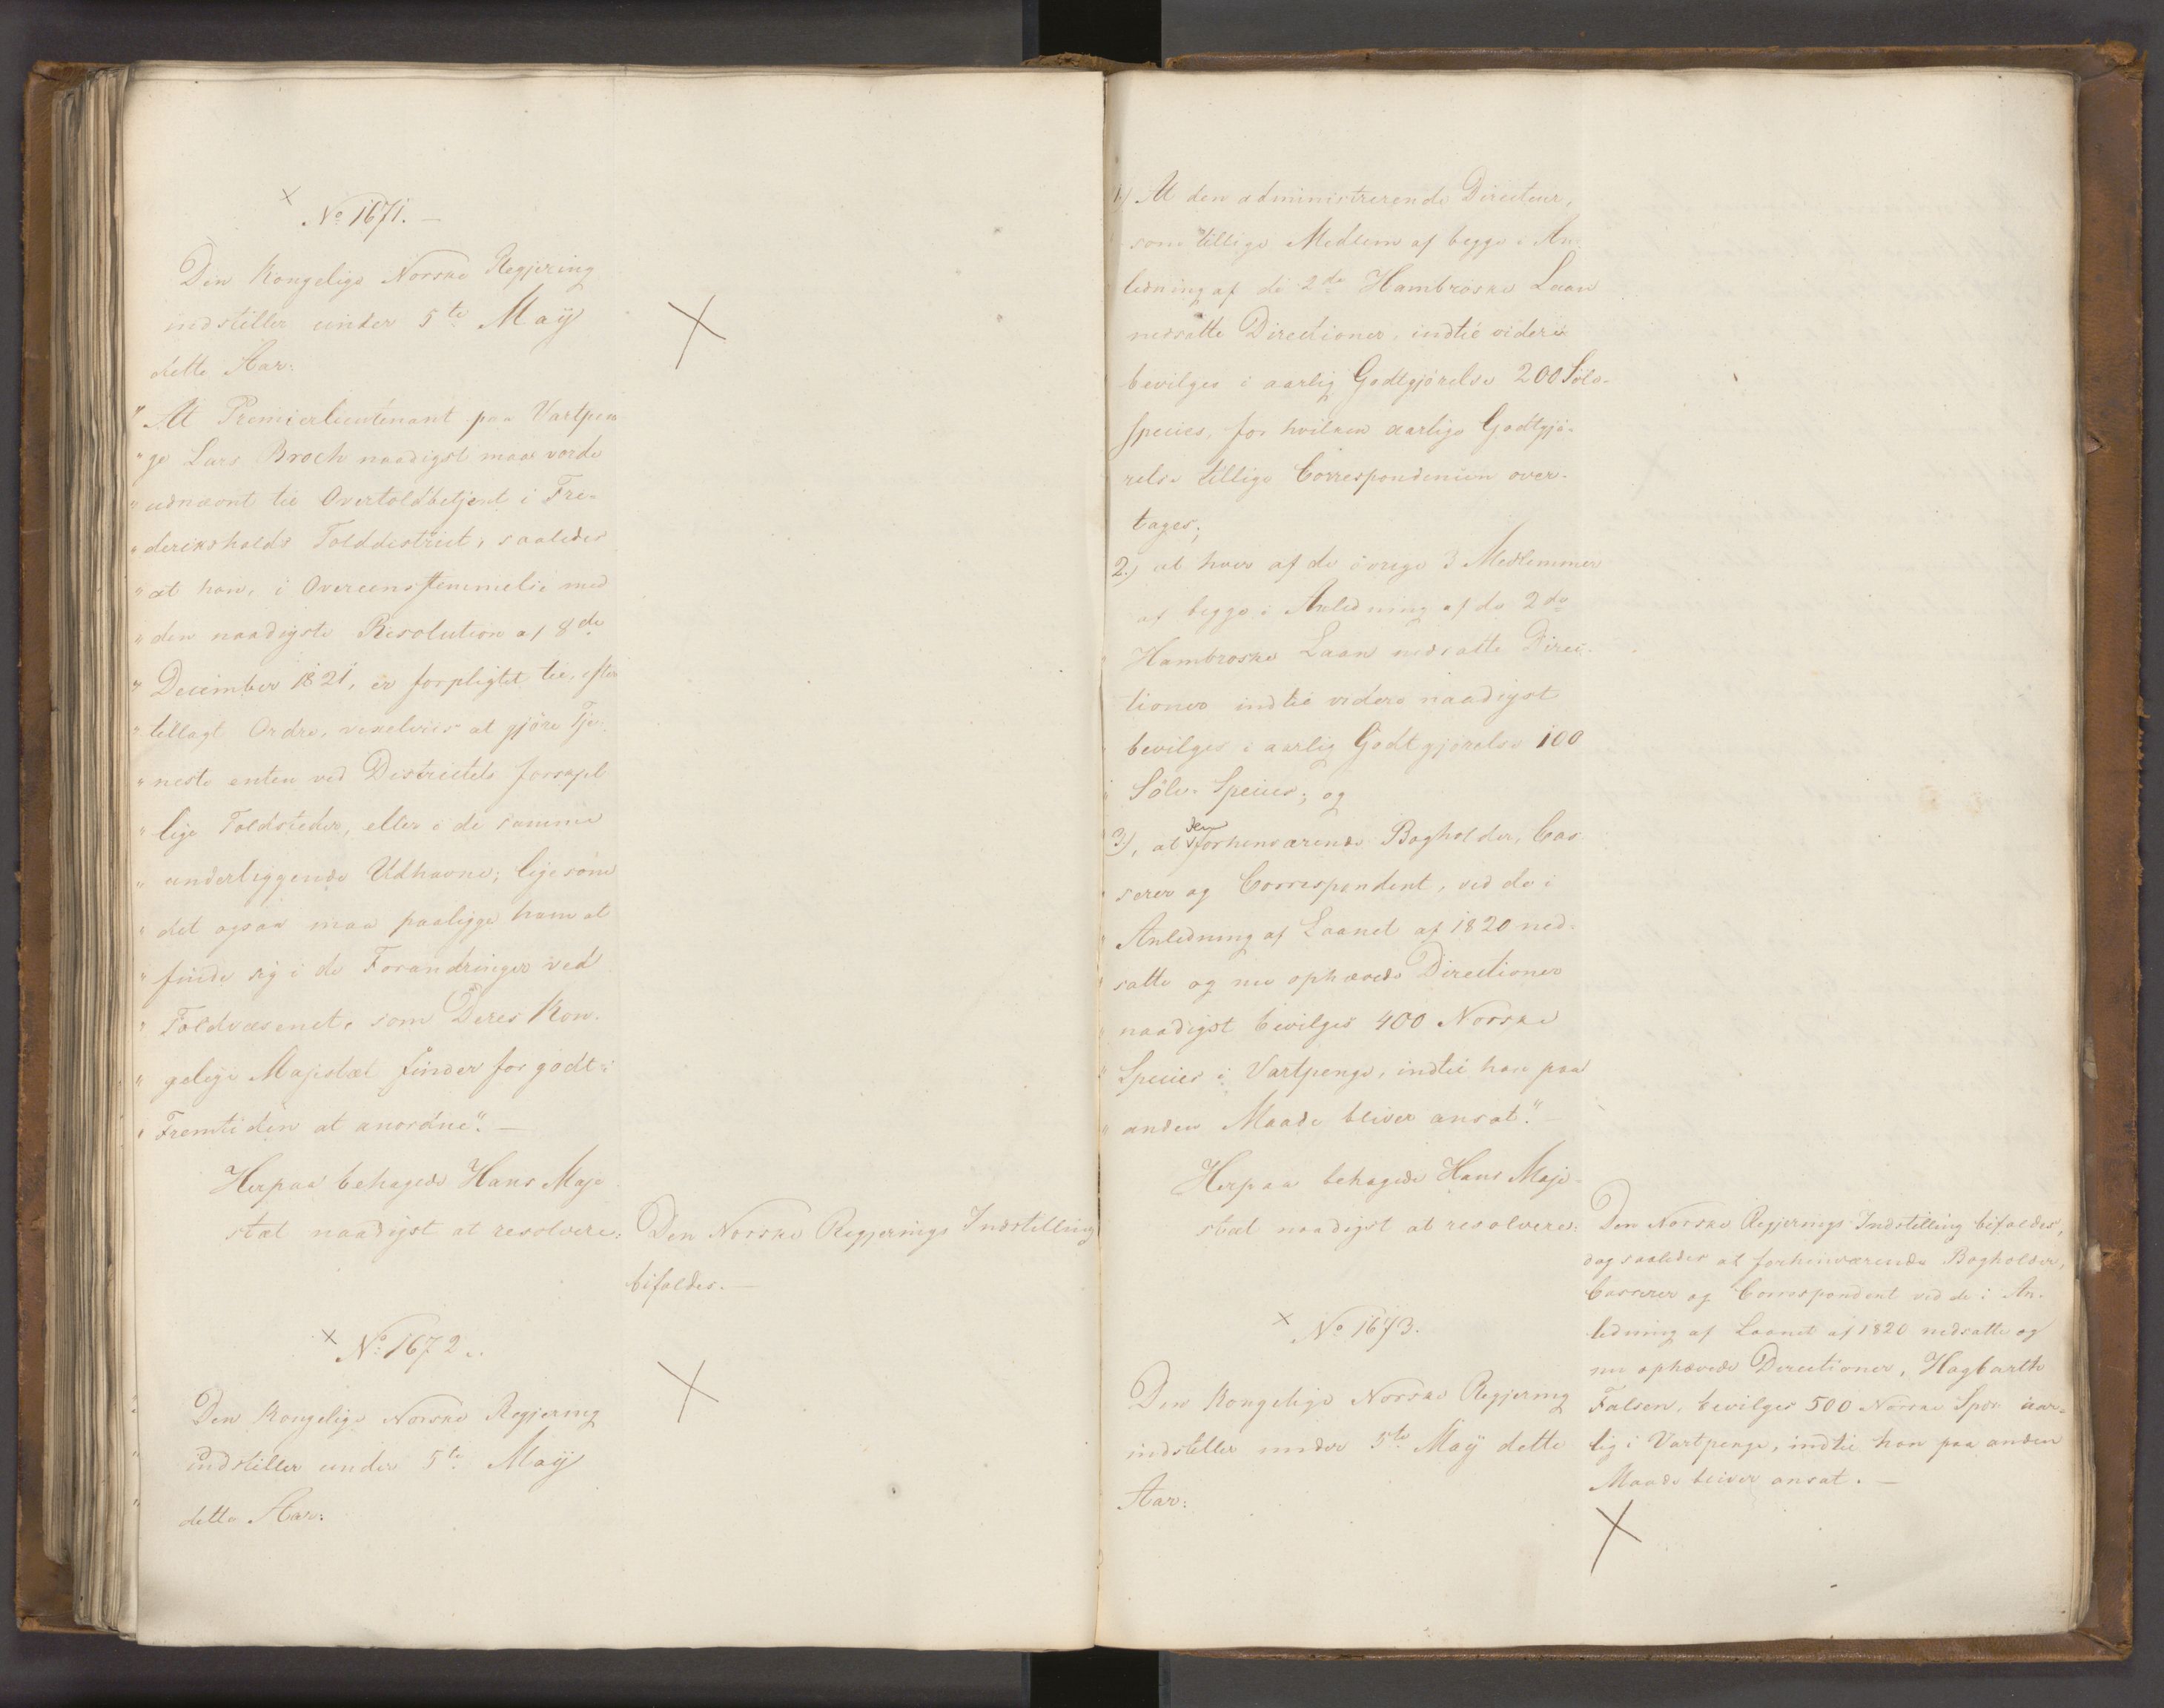 × No 1671. —
Den Kongelige Norske Regjering
indstiller under 5te Maÿ
dette Aar:
" At Premierlieutenant paa Vartpen-
" ge Lars Broch naadigst maa vorde
" udnævnt til Overtoldbetjent i Fre-
" deriksholds Tolddestrict, saaledes
" at han, i Overeensstemmelse med
" den naadigste Resolution af 8de
" December 1821, er forpligtet til, efter
" tillagt Ordre, vexelviis at gjöre Tje-
" neste enten ved Districtets forskjel
" lige Toldsteder, eller i de samme
" underliggende Udhavne; ligesom
" det ogsaa maa paaligge ham at
" finde sig i de Forandringer ved
" Toldvæsenet, som Deres Kon-
" gelige Majestæt finder for godt i
" Fremtiden at anordne". —
Herpaa behagede Hans Maje
stæt naadigst at resolvere:
Den Norske Regjerings Indstilling
bifaldes. —
× No 1672..
Den Kongelige Norske Regjering
indstiller under 5te Maÿ
dette Aar:
1) At den administrerende Directeur,
som tillige Medlem af begge i An-
ledning af de 2de Hambroske Laan
nedsatte Directioner, indtil videre
bevilges i aarlig Godtgjörelse 200 Sölv-
species, for hvilken aarlige Godtgjö-
relse tillige Correspondencen over-
tages;
2.) at hver af de övrige 3 Medlemmer
af begge i Anledning af de 2de
Hambroske Laan nedsatte Direc-
tioner indtil videre naadigst
bevilges i aarlig Godtgjörelse 100
" Sölv-Species; og
3), at den forhenværende Bogholder, Cas
" serer og Correspondent, ved de i
" Anledning af Laanet af 1820 ned-
" satte og nu ophævede Directioner
" naadigst bevilges 400 Norske
" Species i Vartpenge, indtil han paa
" anden Maade bliver ansat". —
Herpaa behagede Hans Maje-
stæt naadigst at resolvere:
Den Norske Regjerings Indstilling bifaldes,
dog saaledes at forhenværende Bogholder,
Casserer og Correspondent ved de i An-
ledning af Laanet af 1820 nedsatte og
nu ophævede Directioner, Hagbarth
Falsen, bevilges 500 Norske Spec aar-
lig i Vartpenge, indtil han paa anden
Maade bliver ansat. —
× No 1673.
Den Kongelige Norske Regjering
indstiller under 5te Maÿ dette
Aar: